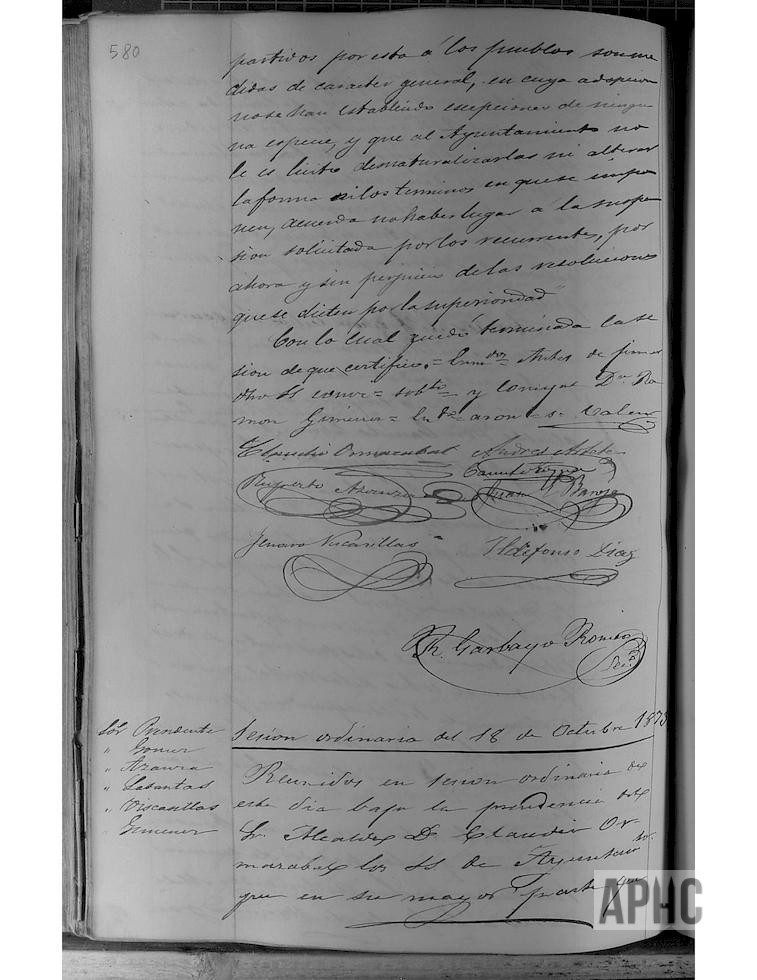 580
partidos por esta á los pueblos son me
didas de caracter general, en cuya adopcion
no se han establecido escepciones de ningu
na especie, y que al Ayuntamiento no
le es licito desnaturalizarlas ni alterar
la forma ni los terminos en que se impo
nen, acuerda no haber lugar á la suspe
sion solicitada por los recurrentes, por
ahora y sin perjuicio de las resoluciones
que se dicten por la superioridad"
Con lo cual quedó terminada la se
sion de que certifico. = Enmdos =
dho SS = y Don Ra
mon Gimenez = = Valen
Claudio Ormazabal
Ruperto Azanza Juan Baroja
Genaro Viscasillas Ildefonso Diaz
R. Garbayo Romeo
Sec.o
Sor Presidente
" Gomez
" Azanza
" Labastas
" Viscasillas
" Gimenez
Sesion ordinaria del 18 de Octubre 1873
Reunidos en sesion ordinaria de
este dia bajo la presidencia del
Sr. Alcalde D. Claudio Or-
mazabal los SS. de Ayuntamto
que en su mayor parte que
APHC